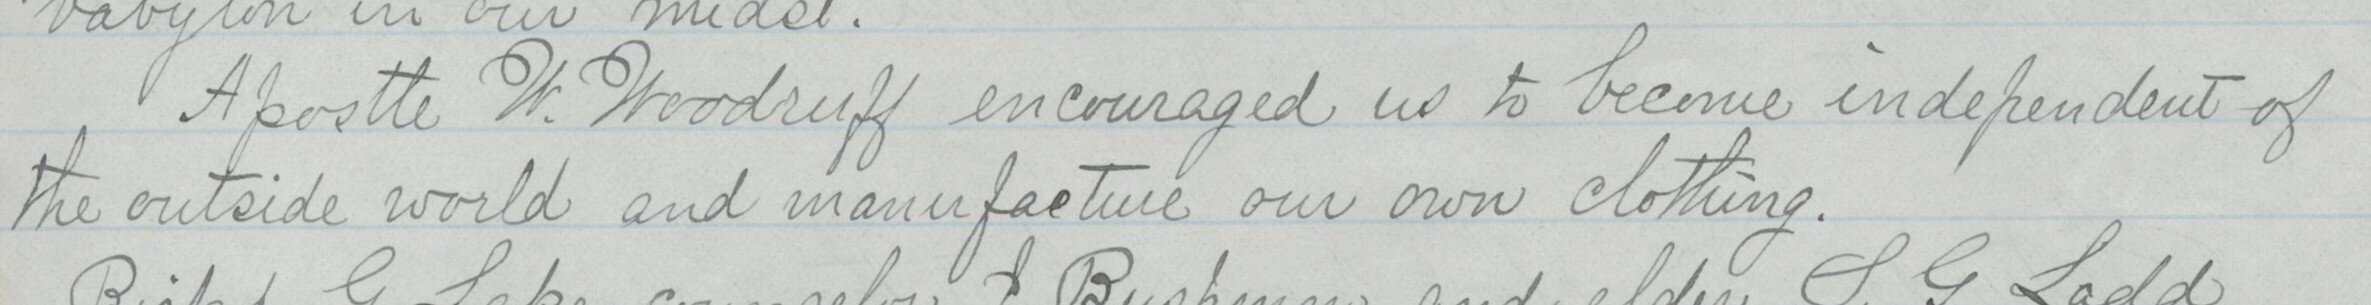 babylon in our midst.
Apostle W. Woodruff encouraged us to become independent of
the outside world and manufacture our own clothing.
Bishop G Lake counselor J Bushman and elder S. G Ladd